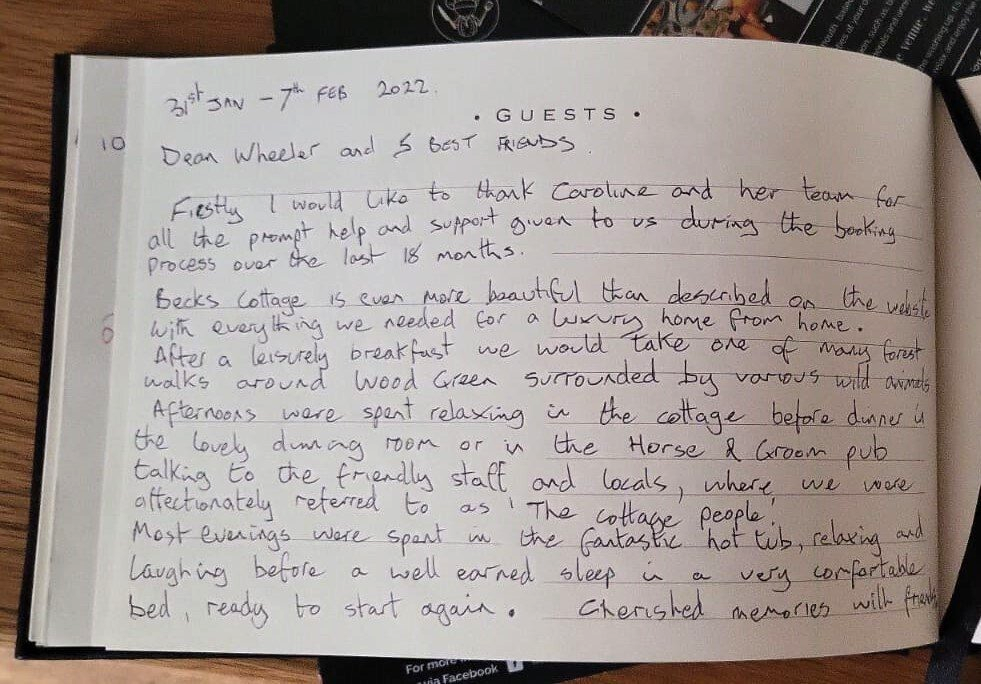 31st JAN - 7th FEB 2022.
• GUESTS •
10
Dean Wheeler and 5 BEST FRIENDS.
Firstly I would like to thank Caroline and her team for
all the prompt help and support given to us during the booking
process over the last 18 months.
Becks Cottage is even more beautiful than described on the website
with everything we needed for a luxury home from home.
After a leisurely breakfast we would take one of many forest
walks around Wood Green surrounded by various wild animals
Afternoons were spent relaxing in the cottage before dinner in
the lovely dining room or in the Horse & Groom pub
talking to the friendly staff and locals, where we were
affectionately referred to as 'The cottage people'.
Most evenings were spent in the fantastic hot tub, relaxing and
laughing before a well earned sleep in a very comfortable
bed, ready to start again. Cherished memories with friends
For more
via Facebook